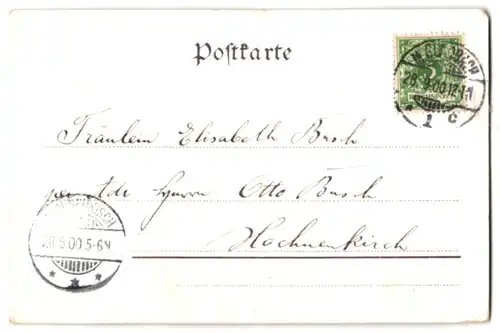 Postkarte
M. GLADBACH
28.9.00.12-1N
* 1 c
Fräulein Elisabeth Busch
per Adr Herrn Otto Busch
Hochneukirch
5-6N
* * *